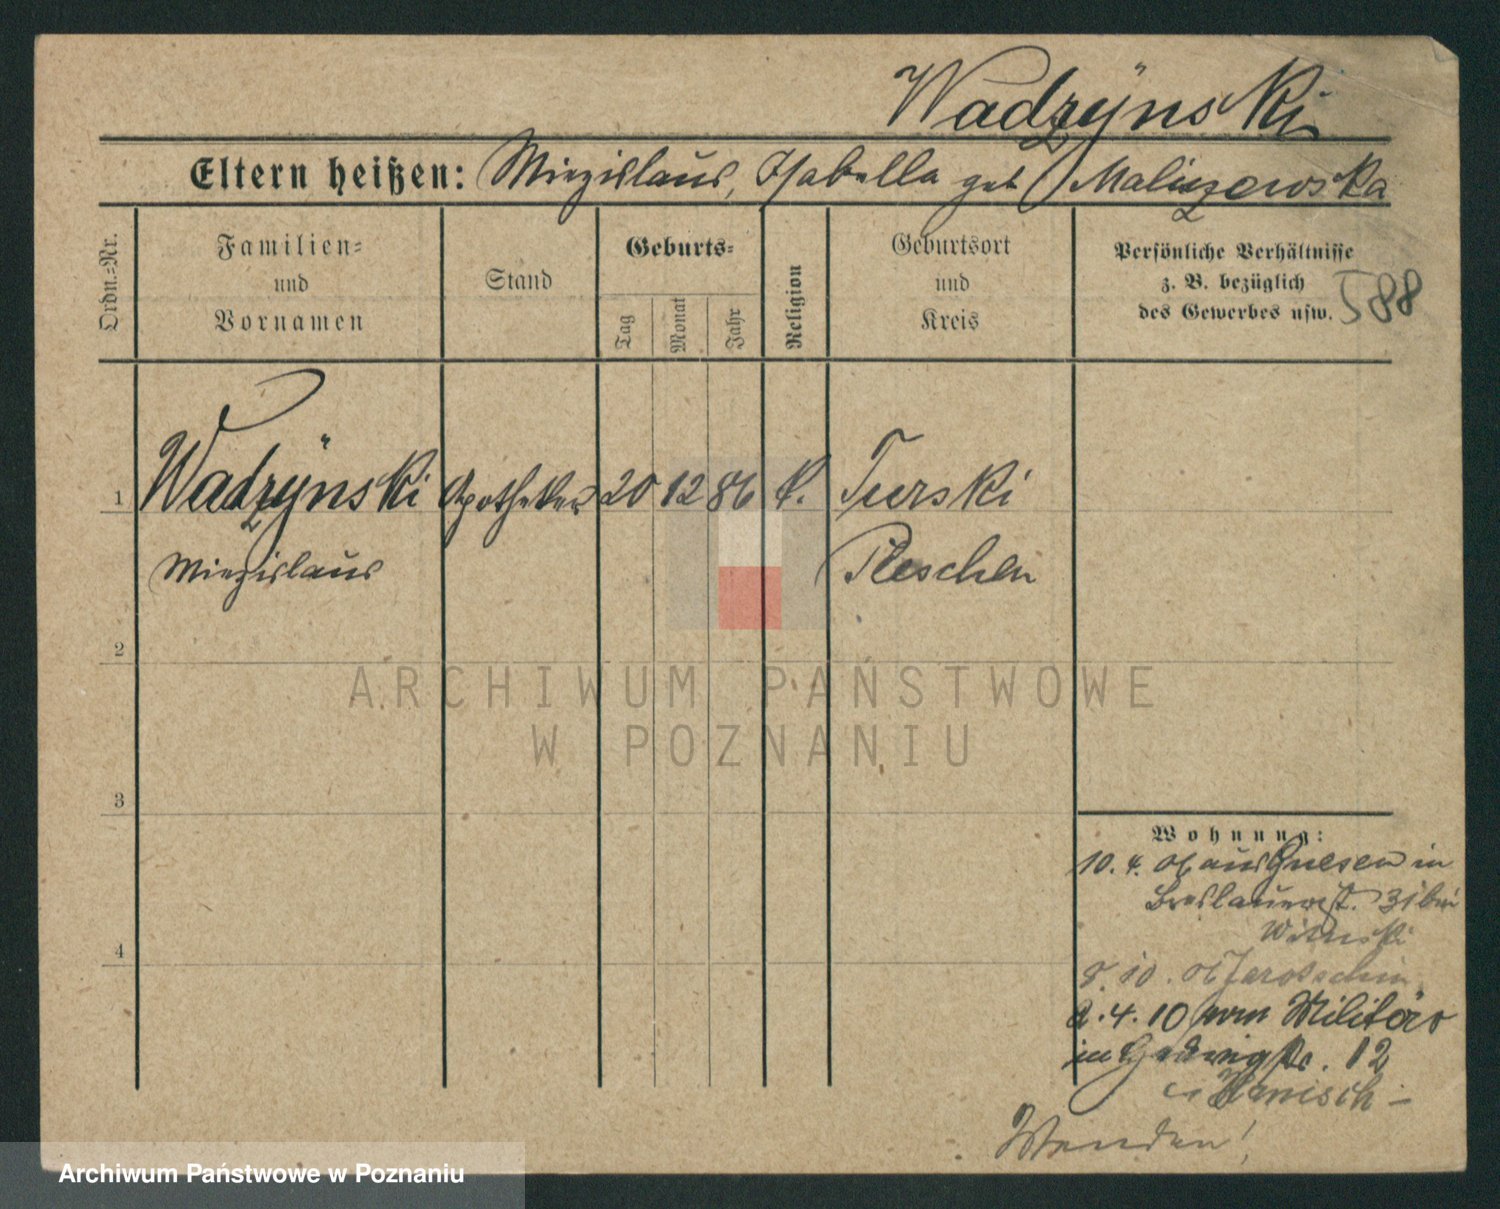 Wadzÿnski
Eltern heißen: Miezislaus, Isabella geb Maliszewska
Ordn.=Nr.
Familien=
und
Vornamen
Stand
Geburts=
Tag
Monat
Jahr
Religion
Geburtsort
und
Kreis
Persönliche Verhältnisse
z. B. bezüglich
des Gewerbes usw.
588
1 Wadzÿnski Apotheker 20 12 86 k. Turski
Miezislaus Pleschen
2
3
4
Wohnung:
10. 4. 06 aus Gnesen in
Breslauerst. 31 bei
Witaski
8. 10. 06 Jarotschin
2. 4. 10 vom Militär
in Hedwigstr. 12
Wenden!
ARCHIWUM PAŃSTWOWE
W POZNANIU
Archiwum Państwowe w Poznaniu